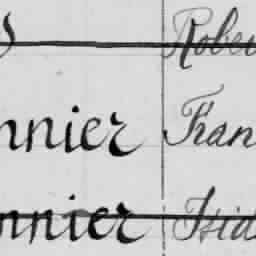 Rober
nnier Fran
nnier Isid